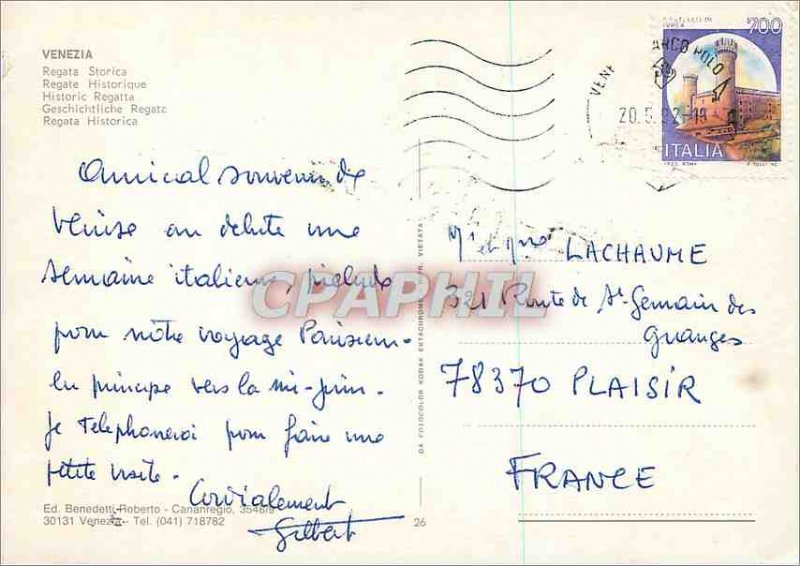 VENEZIA
Regata Storica
Regate Historique
Historic Regatta
Geschichtliche Regate
Regata Historica
700
MARCO POLO
VENE
20.5.92-19
ITALIA
Amical souvenir de
Venise où débute une
semaine italienne, prélude
pour nôtre voyage Parisien.
En principe vers la mi-juin.
je téléphonerai pour faire une
petite visite.
Cordialement
Gilbert
Mr et Mme LACHAUME
321 Route de St Germain des
Granges
78370 PLAISIR
FRANCE
CPAPHIL
Ed. Benedetti Roberto - Cannaregio, 3548/B
30131 Venezia - Tel. (041) 718782
26
DA FOTOCOLOR KODAK EKTACHROME
VIETATA